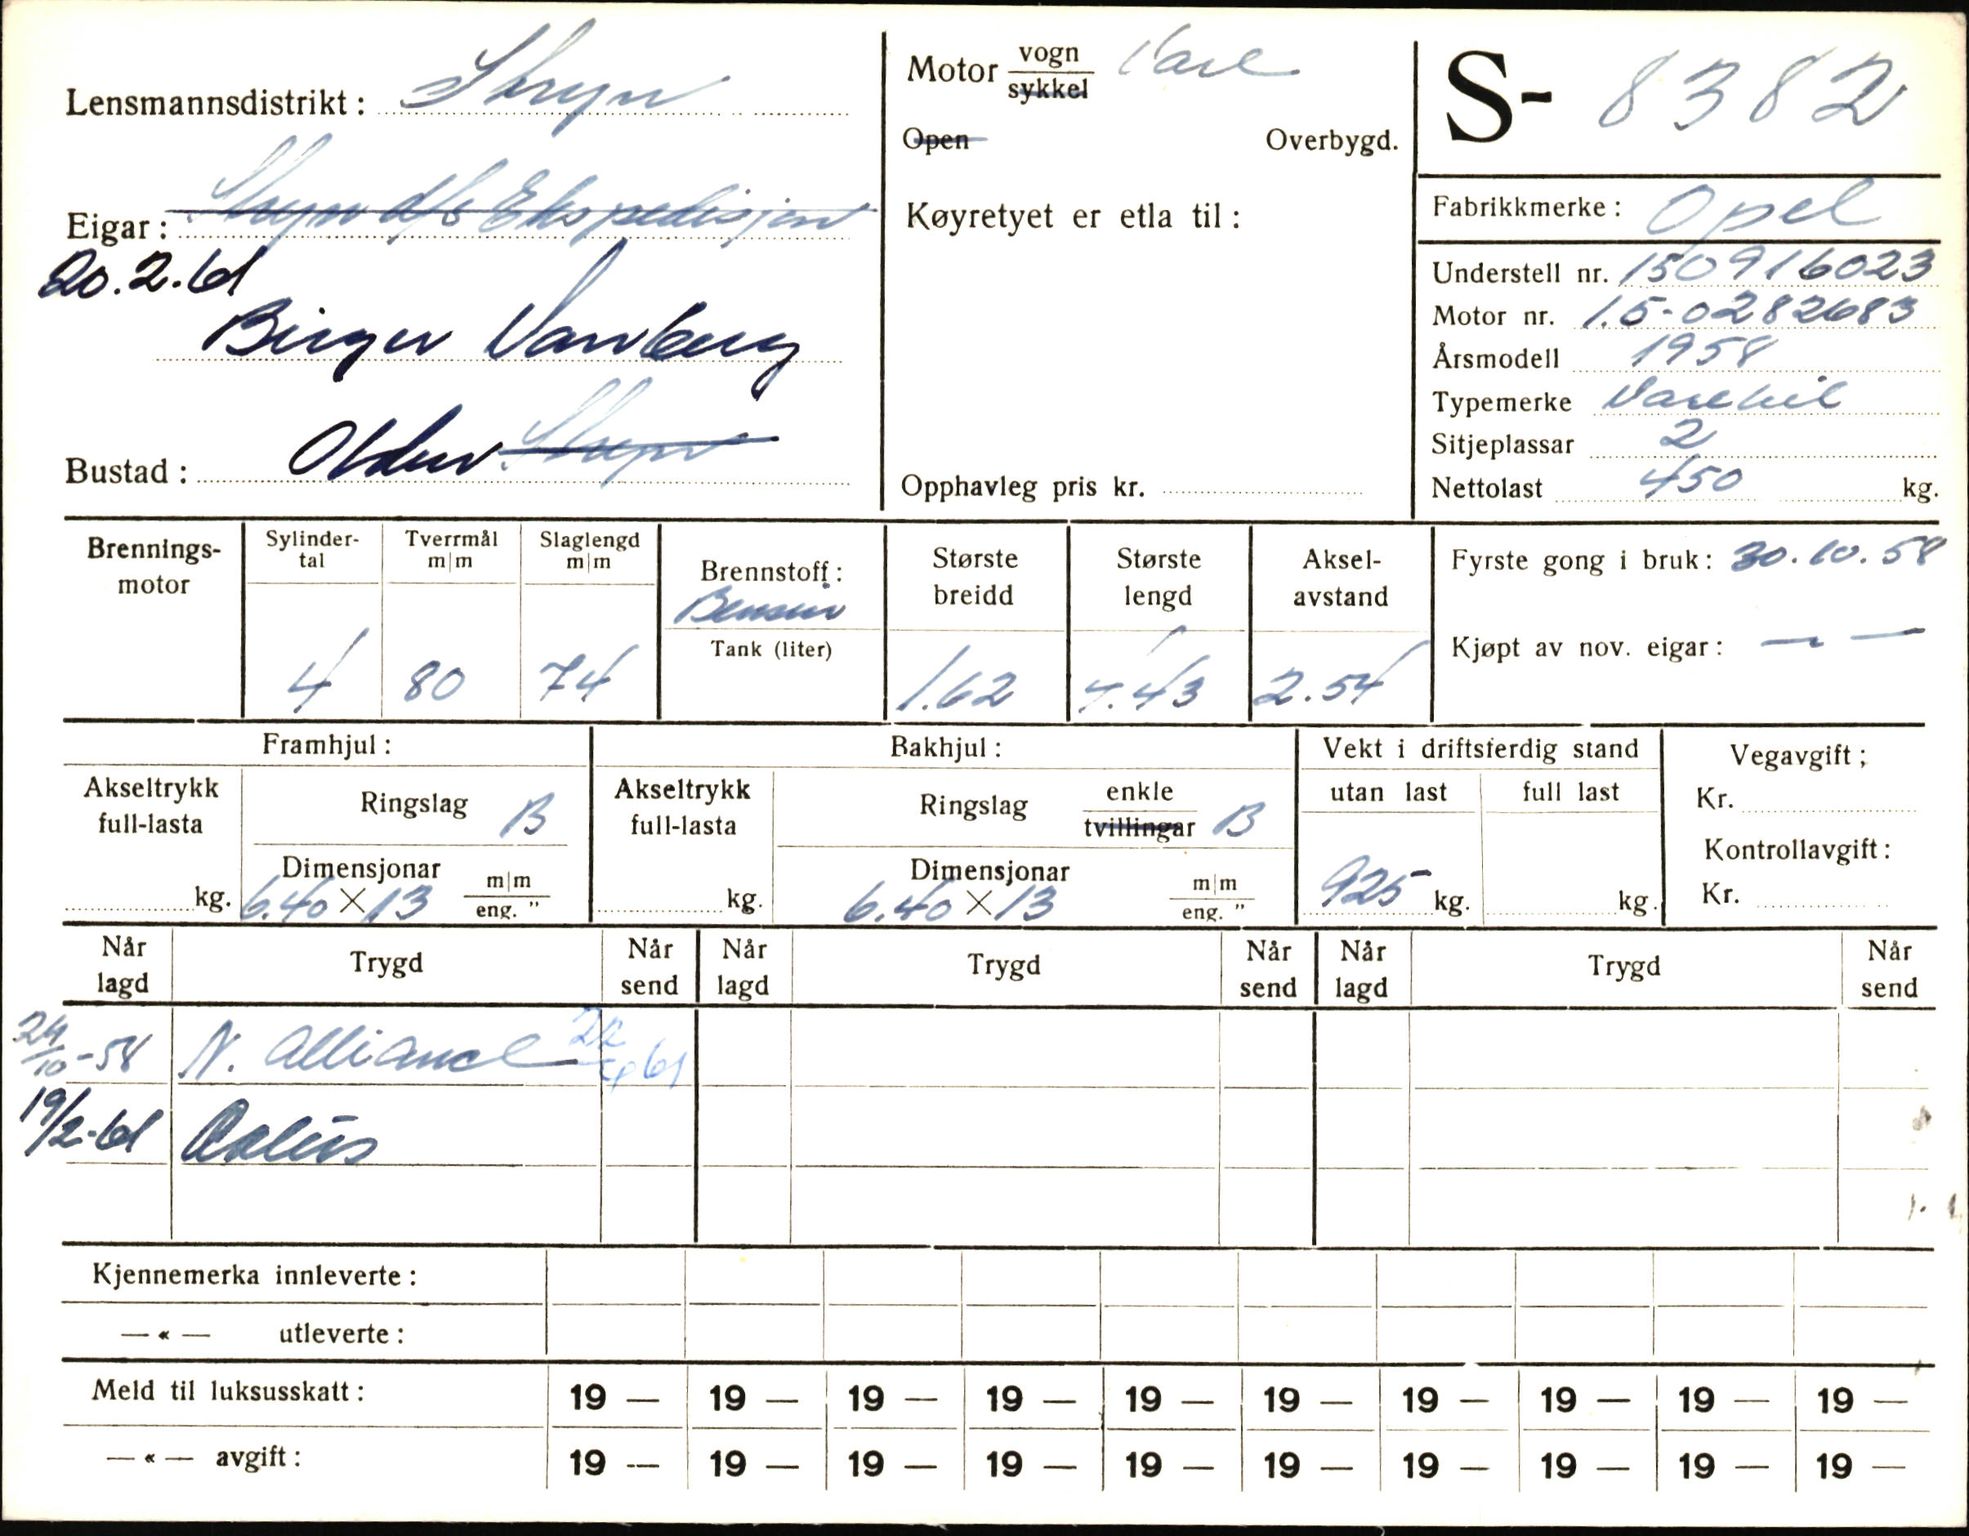 Lensmannsdistrikt: Stryn
Motor vogn Vare
sykkel
Open Overbygd.
S- 8382
Eigar: Stryn d/s Ekspedisjon
20.2.61
Birger
Bustad: Olden Stryn
Køyretyet er etla til:
Opphavleg pris kr.
Fabrikkmerke: Opel
Understell nr. 150916023
Motor nr. 1.5-0282683
Årsmodell 1958
Typemerke Varebil
Sitjeplassar 2
Nettolast 450 kg.
Brennings-
motor
Sylinder-
tal
4
Tverrmål
m|m
80
Slaglengd
m|m
74
Brennstoff:
Bensin
Tank (liter)
Største
breidd
1.62
Største
lengd
4.43
Aksel-
avstand
2.54
Fyrste gong i bruk: 30.10.58
Kjøpt av nov. eigar: — —
Framhjul:
Akseltrykk
full-lasta
kg.
Ringslag B
Dimensjonar m|m
6.40 × 13 eng. "
Bakhjul:
Akseltrykk
full-lasta
kg.
Ringslag enkle
tvillingar B
Dimensjonar m|m
6.40 × 13 eng. "
Vekt i driftsferdig stand
utan last full last
925 kg. kg.
Vegavgift;
Kr.
Kontrollavgift:
Kr.
Når
lagd Trygd Når
send Når
lagd Trygd Når
send Når
lagd Trygd Når
send
24/10-58 N. Alliance 61
19/2-61
Kjennemerka innleverte:
— « — utleverte:
Meld til luksusskatt: 19 — 19 — 19 — 19 — 19 — 19 — 19 — 19 — 19 — 19 —
— « — avgift: 19 — 19 — 19 — 19 — 19 — 19 — 19 — 19 — 19 — 19 —